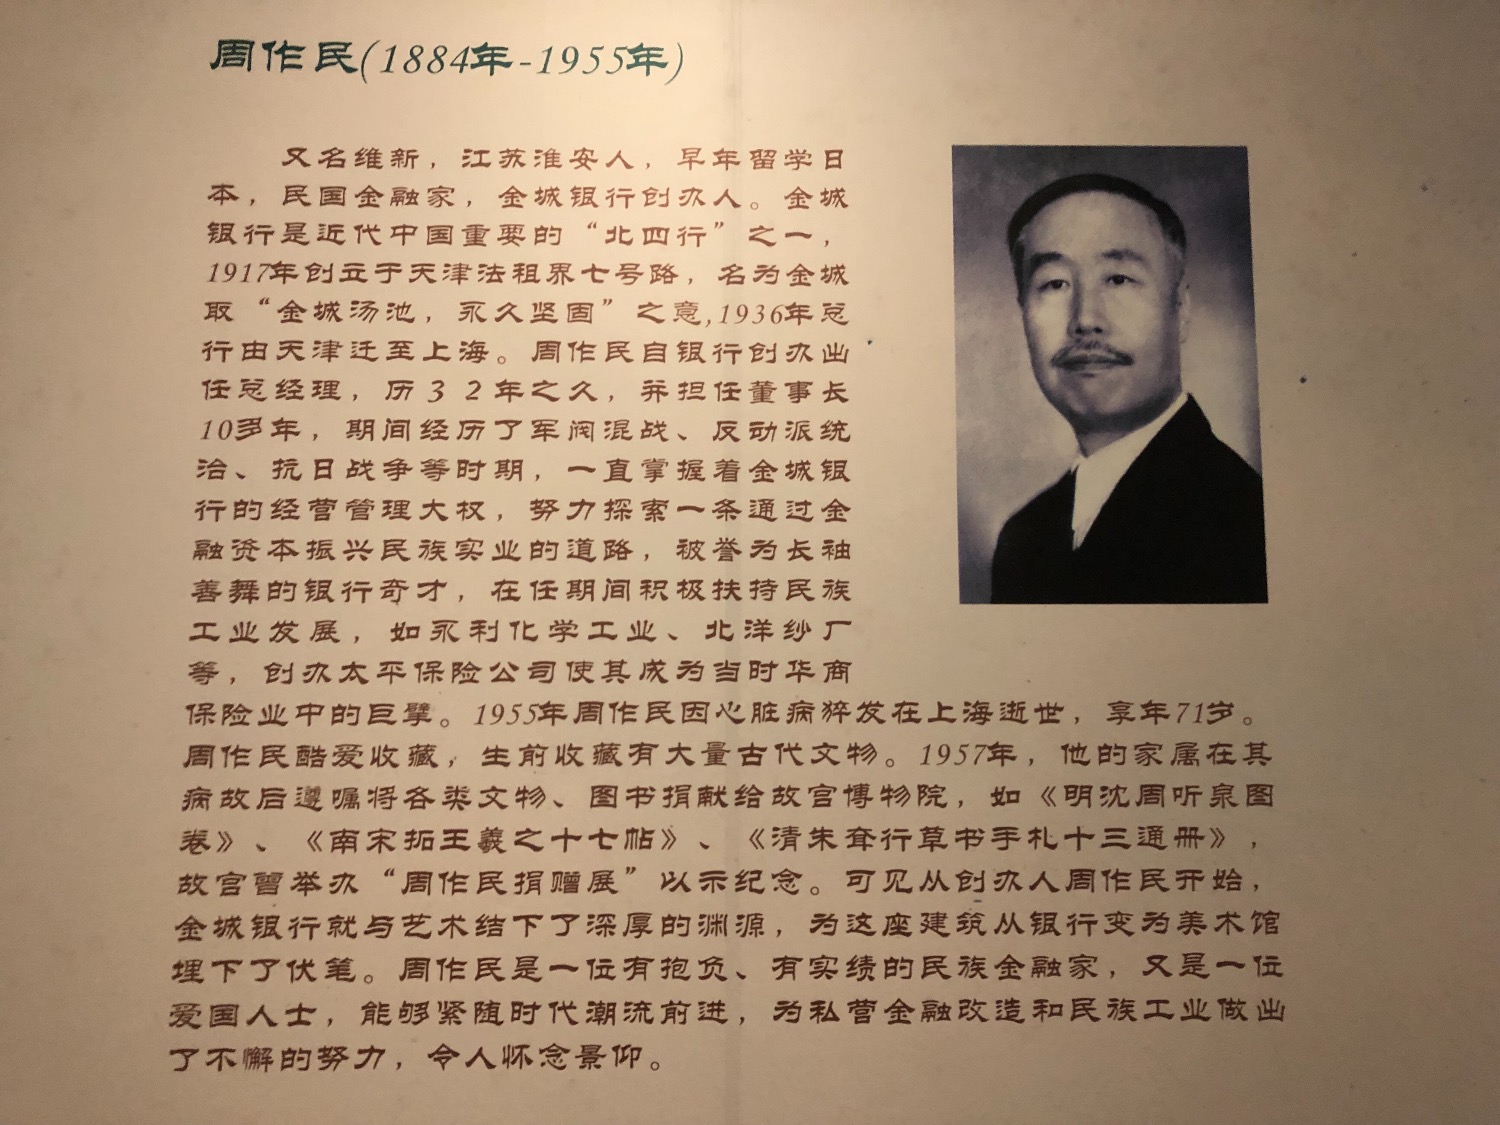 周作民(1884年-1955年)
又名维新，江苏淮安人，早年留学日
本，民国金融家，金城银行创办人。金城
银行是近代中国重要的“北四行”之一，
1917年创立于天津法租界七号路，名为金城
取“金城汤池，永久坚固”之意,1936年总
行由天津迁至上海。周作民自银行创办出
任总经理，历３２年之久，并担任董事长
10多年，期间经历了军阀混战、反动派统
治、抗日战争等时期，一直掌握着金城银
行的经营管理大权，努力探索一条通过金
融资本振兴民族实业的道路，被誉为长袖
善舞的银行奇才，在任期间积极扶持民族
工业发展，如永利化学工业、北洋纱厂
等，创办太平保险公司使其成为当时华商
保险业中的巨擘。1955年周作民因心脏病猝发在上海逝世，享年71岁。
周作民酷爱收藏，生前收藏有大量古代文物。1957年，他的家属在其
病故后遵嘱将各类文物、图书捐献给故宫博物院，如《明沈周听泉图
卷》、《南宋拓王羲之十七帖》、《清朱耷行草书手札十三通册》，
故宫曾举办“周作民捐赠展”以示纪念。可见从创办人周作民开始，
金城银行就与艺术结下了深厚的渊源，为这座建筑从银行变为美术馆
埋下了伏笔。周作民是一位有抱负、有实绩的民族金融家，又是一位
爱国人士，能够紧随时代潮流前进，为私营金融改造和民族工业做出
了不懈的努力，令人怀念景仰。